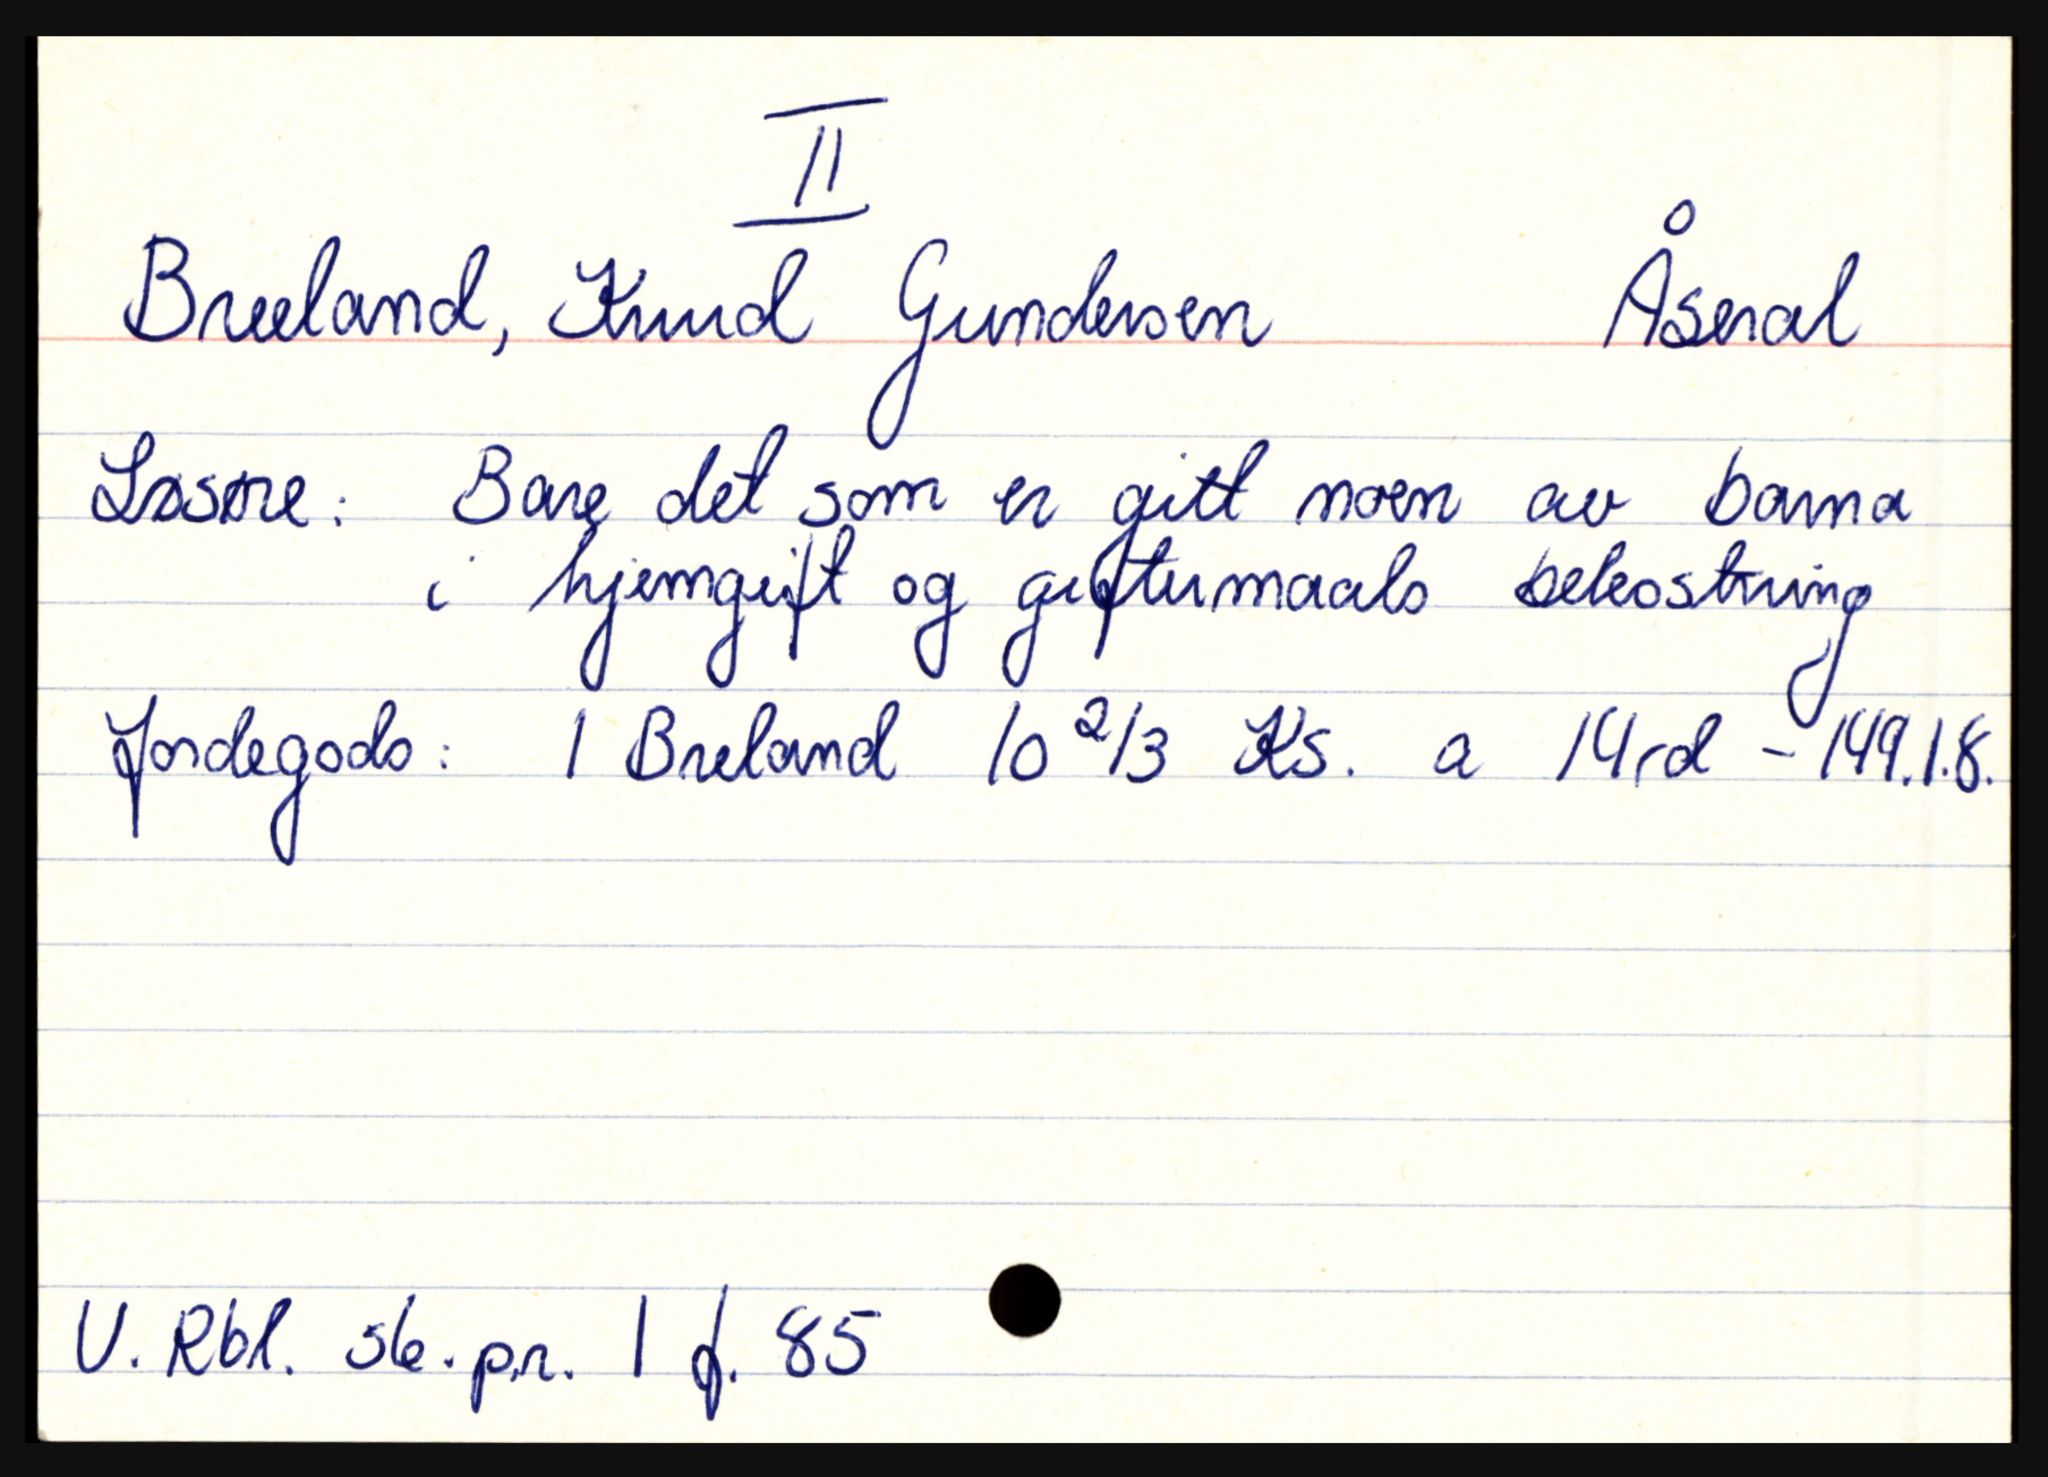 II
Breeland, Knud Gundersen Åseral
Løsøre: Bare det som er gitt noen av barna
i hjemgift og giftermaals bekostning
Jordegods: I Breland 10 2/3 Ks. a 14 rd - 149.1.8.
V. Rbl. sk. pr. 1 f. 85